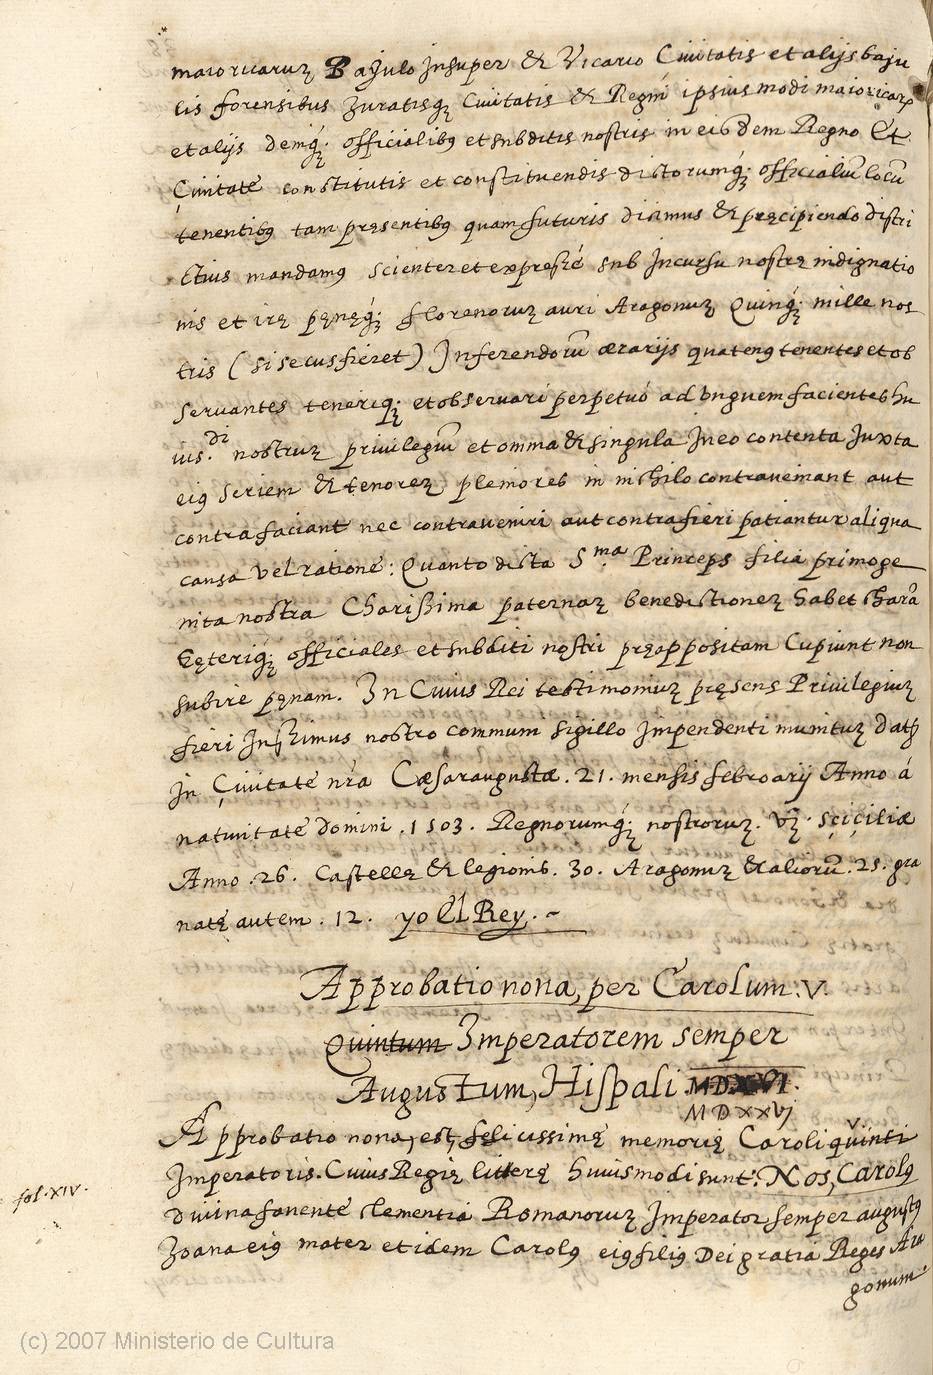 maioricarum Bajulo Insuper & Vicario Ciuitatis et alijs baju
lis forensibus Juratisq; Ciuitatis & Regni ipsius modi maioricarȝ
et alijs demq́; officialibꝰ et subditis nostris in eisdem Regno Et
Çiuitate constitutis et constituendis dictorumq́; officialiū locū
tenentibꝰ tam pręsentibꝰ quam futuris dicimus & pręcipiendo distri
ctius mandamꝰ scienter et expressé sub Incursu nostrę indignatio
nis et irę pęnęq́; florenorum auri Aragonum Quinq́; mille nos
tris (si secus fieret) Inferendorū ærarijs quatenꝰ tenentes et ob
servantes teneriq; et observari perpetuó ad Unguem facientes hu
ius.di nostrum priuilegiū et omnia & singula In eo contenta Juxta
eiꝰ seriem & tenorem pleniores in nihilo contraveniant aut
contrafaciant nec contraveniri aut contrafieri patiantur aliqua
causa vel ratione: Quanto dicta S.ma Princeps filia primoge
nita nostra Charissima paternam benedictionem habet charā
Cęteriq́; officiales et subditi nostri pręappositam Cupiunt non
subire pęnam. In Cuius Rei testimonium pręsens Priuilegium
fieri Iussimus nostro communi sigillo Impendenti munitum Datꝭ
in Çiuitate nr̃a Cæsaraugustæ .21. mensis febroarij Anno á
natiuitate Domini .1503. Regnorumq́; nostrorum. Vȝ. sçiçiliæ
Anno .26. Castellę & legionis. 30. Aragonum & aliorū. 25. gra
natę autem . 12. yo El Rey. ~
Approbatio nona, per Carolum .V.
Quintum Imperatorem semper
Augustum, Hispali MDXVI.
MDXXVJ
Approbatio nona, est, felicissimę memorię Caroli quinti V.
Imperatoris. Cuius Regię litterę huiusmodi sunt: Nos, Carolꝰ
Diuina fauente clementia Romanorum Imperator semper augustꝰ
Joana eiꝰ mater et idem Carolꝰ eiꝰ filiꝰ Dei gratia Reges Ara
gonum
fol. XIV.
(c) 2007 Ministerio de Cultura